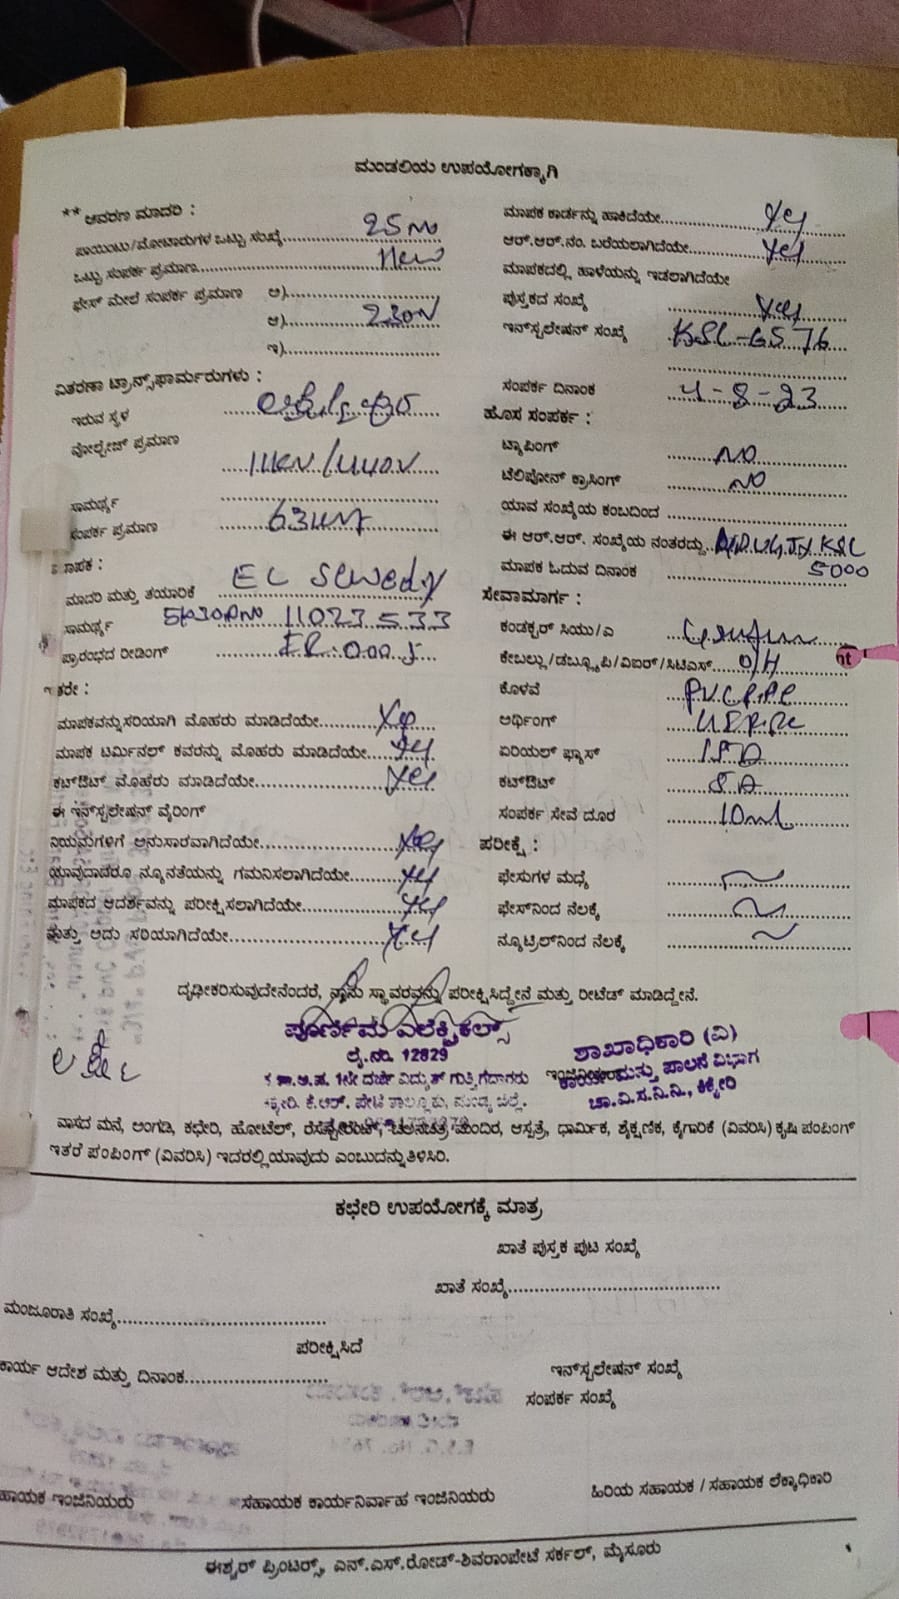 ಮಂಡಲಿಯ ಉಪಯೋಗಕ್ಕಾಗಿ
** ಆವರಣ ಮಾದರಿ :
ಪಾಯಿಂಟು/ಮೋಟಾರುಗಳ ಒಟ್ಟು ಸಂಖ್ಯೆ
ಒಟ್ಟು ಸಂಪರ್ಕ ಪ್ರಮಾಣ New
ಫೇಸ್ ಮೇಲೆ ಸಂಪರ್ಕ ಪ್ರಮಾಣ ಅ)
ಆ) 230V
ಇ)
ವಿತರಣಾ ಟ್ರಾನ್ಸ್‌ಫಾರ್ಮರುಗಳು :
ಇರುವ ಸ್ಥಳ
ವೋಲ್ಟೇಜ್ ಪ್ರಮಾಣ
11KV/440V
ಸಾಮರ್ಥ್ಯ
ಸಂಪರ್ಕ ಪ್ರಮಾಣ
ಮಾಪಕ :
ಮಾದರಿ ಮತ್ತು ತಯಾರಿಕೆ
ಸಾಮರ್ಥ್ಯ 11023533
ಪ್ರಾರಂಭದ ರೀಡಿಂಗ್
ಇತರೇ :
ಮಾಪಕವನ್ನು ಸರಿಯಾಗಿ ಮೊಹರು ಮಾಡಿದೆಯೇ Yes
ಮಾಪಕ ಟರ್ಮಿನಲ್ ಕವರನ್ನು ಮೊಹರು ಮಾಡಿದೆಯೇ Yes
ಕಟ್‌ಔಟ್ ಮೊಹರು ಮಾಡಿದೆಯೇ Yes
ಈ ಇನ್‌ಸ್ಟಲೇಷನ್ ವೈರಿಂಗ್
ನಿಯಮಗಳಿಗೆ ಅನುಸಾರವಾಗಿದೆಯೇ Yes
ಯಾವುದಾದರೂ ನ್ಯೂನತೆಯನ್ನು ಗಮನಿಸಲಾಗಿದೆಯೇ Yes
ಮಾಪಕದ ಆದರ್ಶವನ್ನು ಪರೀಕ್ಷಿಸಲಾಗಿದೆಯೇ Yes
ಮತ್ತು ಅದು ಸರಿಯಾಗಿದೆಯೇ Yes
ಮಾಪಕ ಕಾರ್ಡನ್ನು ಹಾಕಿದೆಯೇ Yes
ಆರ್.ಆರ್.ನಂ. ಬರೆಯಲಾಗಿದೆಯೇ Yes
ಮಾಪಕದಲ್ಲಿ ಹಾಳೆಯನ್ನು ಇಡಲಾಗಿದೆಯೇ
ಪುಸ್ತಕದ ಸಂಖ್ಯೆ Yes
ಇನ್‌ಸ್ಟಲೇಷನ್ ಸಂಖ್ಯೆ KSL-6576
ಸಂಪರ್ಕ ದಿನಾಂಕ 4-8-23
ಹೊಸ ಸಂಪರ್ಕ :
ಟ್ಯಾಪಿಂಗ್ NO
ಟೆಲಿಫೋನ್ ಕ್ರಾಸಿಂಗ್ NO
ಯಾವ ಸಂಖ್ಯೆಯ ಕಂಬದಿಂದ
ಈ ಆರ್.ಆರ್. ಸಂಖ್ಯೆಯ ನಂತರದ್ದು KSL
ಮಾಪಕ ಓದುವ ದಿನಾಂಕ 5000
ಸೇವಾಮಾರ್ಗ :
ಕಂಡಕ್ಟರ್ ಸಿಯು/ಎ
ಕೇಬಲ್ಲು/ಡಬ್ಲ್ಯೂಪಿ/ವಿಐಆರ್/ಸಿಟಿಎಸ್ O/H
ಕೊಳವೆ PVC Pipe
ಅರ್ಥಿಂಗ್
ಏರಿಯಲ್ ಫ್ಯೂಸ್ 15A
ಕಟ್‌ಔಟ್ 5A
ಸಂಪರ್ಕ ಸೇವೆ ದೂರ
ಪರೀಕ್ಷೆ :
ಫೇಸುಗಳ ಮಧ್ಯೆ
ಫೇಸ್‌ನಿಂದ ನೆಲಕ್ಕೆ
ನ್ಯೂಟ್ರಲ್‌ನಿಂದ ನೆಲಕ್ಕೆ
ದೃಢೀಕರಿಸುವುದೇನೆಂದರೆ, ನಾನು ಸ್ಥಾವರವನ್ನು ಪರೀಕ್ಷಿಸಿದ್ದೇನೆ ಮತ್ತು ರೀಟೆಡ್ ಮಾಡಿದ್ದೇನೆ.
ಪೂರ್ಣಿಮ ಎಲೆಕ್ಟ್ರಿಕಲ್ಸ್
ಲೈ.ನಂ. 12829
1ನೇ ದರ್ಜೆ ವಿದ್ಯುತ್ ಗುತ್ತಿಗೆದಾರರು
ಕೆ.ಆರ್. ಪೇಟೆ ತಾಲ್ಲೂಕು, ಮಂಡ್ಯ ಜಿಲ್ಲೆ.
ಶಾಖಾಧಿಕಾರಿ (ವಿ)
ಕಾರ್ಯ ಮತ್ತು ಪಾಲನೆ ವಿಭಾಗ
ಚಾ.ವಿ.ಸ.ನಿ.ನಿ., ಕಿಕ್ಕೇರಿ
ವಾಸದ ಮನೆ, ಅಂಗಡಿ, ಕಛೇರಿ, ಹೋಟೆಲ್, ರೆಸ್ಟೋರೆಂಟ್, ಚಲನಚಿತ್ರ ಮಂದಿರ, ಆಸ್ಪತ್ರೆ, ಧಾರ್ಮಿಕ, ಶೈಕ್ಷಣಿಕ, ಕೈಗಾರಿಕೆ (ವಿವರಿಸಿ) ಕೃಷಿ ಪಂಪಿಂಗ್
ಇತರೆ ಪಂಪಿಂಗ್ (ವಿವರಿಸಿ) ಇದರಲ್ಲಿ ಯಾವುದು ಎಂಬುದನ್ನು ತಿಳಿಸಿರಿ.
ಕಛೇರಿ ಉಪಯೋಗಕ್ಕೆ ಮಾತ್ರ
ಖಾತೆ ಪುಸ್ತಕ ಪುಟ ಸಂಖ್ಯೆ
ಖಾತೆ ಸಂಖ್ಯೆ
ಮಂಜೂರಾತಿ ಸಂಖ್ಯೆ
ಪರೀಕ್ಷಿಸಿದೆ
ಕಾರ್ಯ ಆದೇಶ ಮತ್ತು ದಿನಾಂಕ
ಇನ್‌ಸ್ಟಲೇಷನ್ ಸಂಖ್ಯೆ
ಸಂಪರ್ಕ ಸಂಖ್ಯೆ
ಹಾಯಕ ಇಂಜಿನಿಯರು ಸಹಾಯಕ ಕಾರ್ಯನಿರ್ವಾಹ ಇಂಜಿನಿಯರು ಹಿರಿಯ ಸಹಾಯಕ / ಸಹಾಯಕ ಲೆಕ್ಕಾಧಿಕಾರಿ
ಈಶ್ವರ್ ಪ್ರಿಂಟರ್ಸ್, ಎನ್.ಎಸ್.ರೋಡ್-ಶಿವರಾಂಪೇಟೆ ಸರ್ಕಲ್, ಮೈಸೂರು